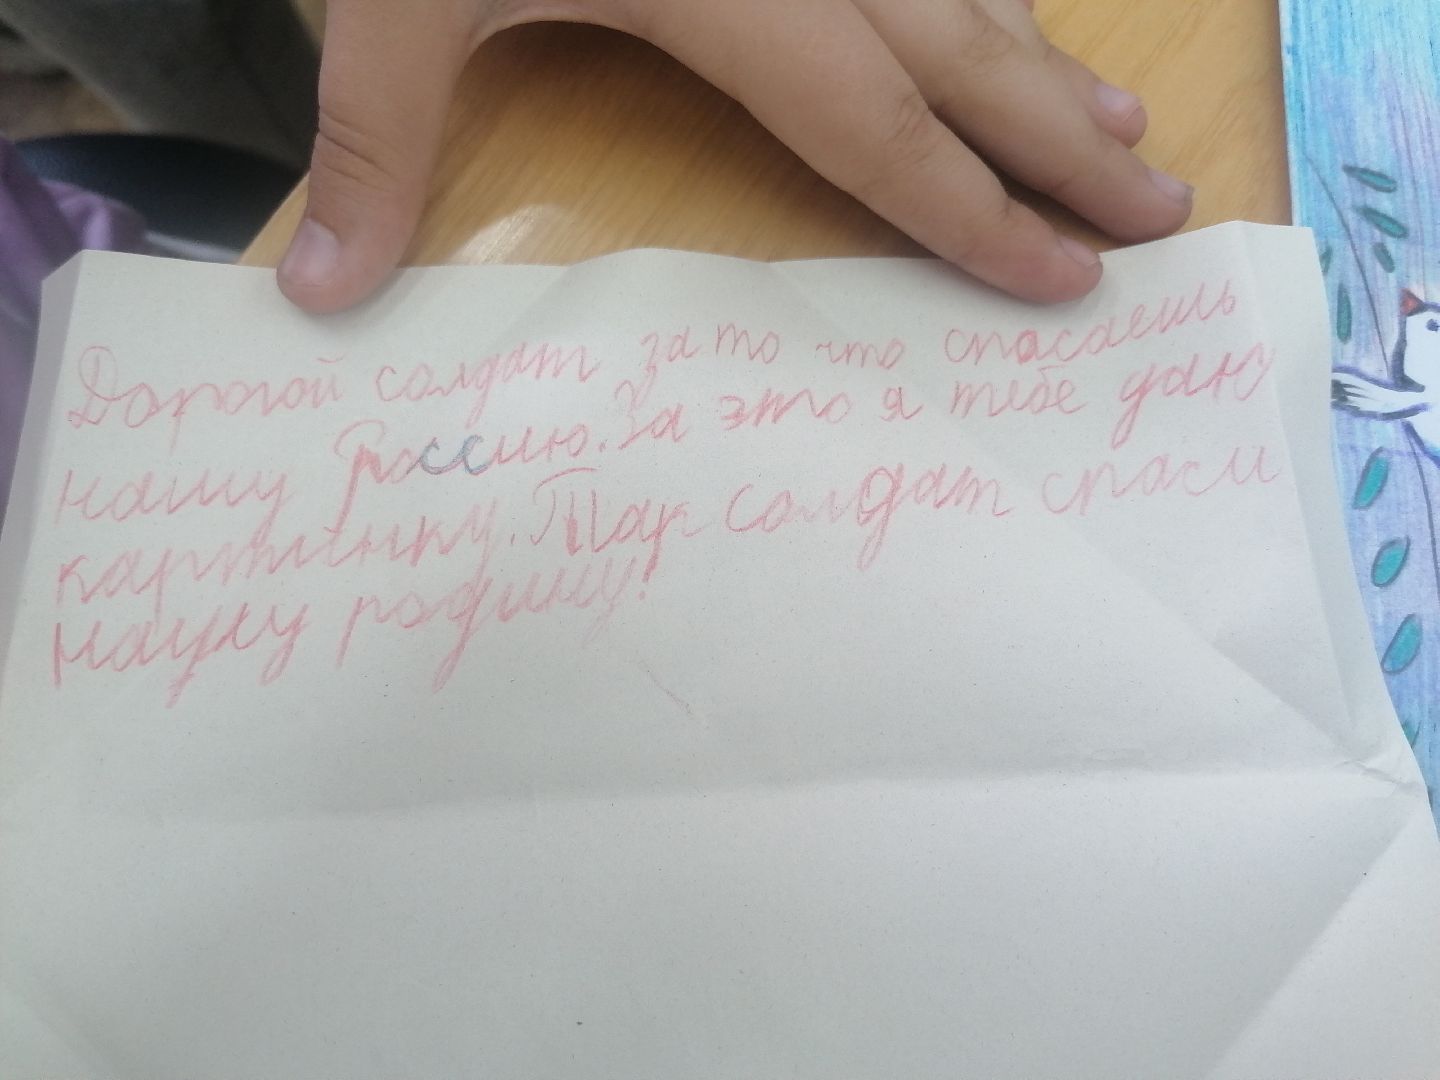 Дорогой солдат за то что спасаешь
нашу Россию. За это я тебе даю
картинку. Так солдат спаси
нашу родину!